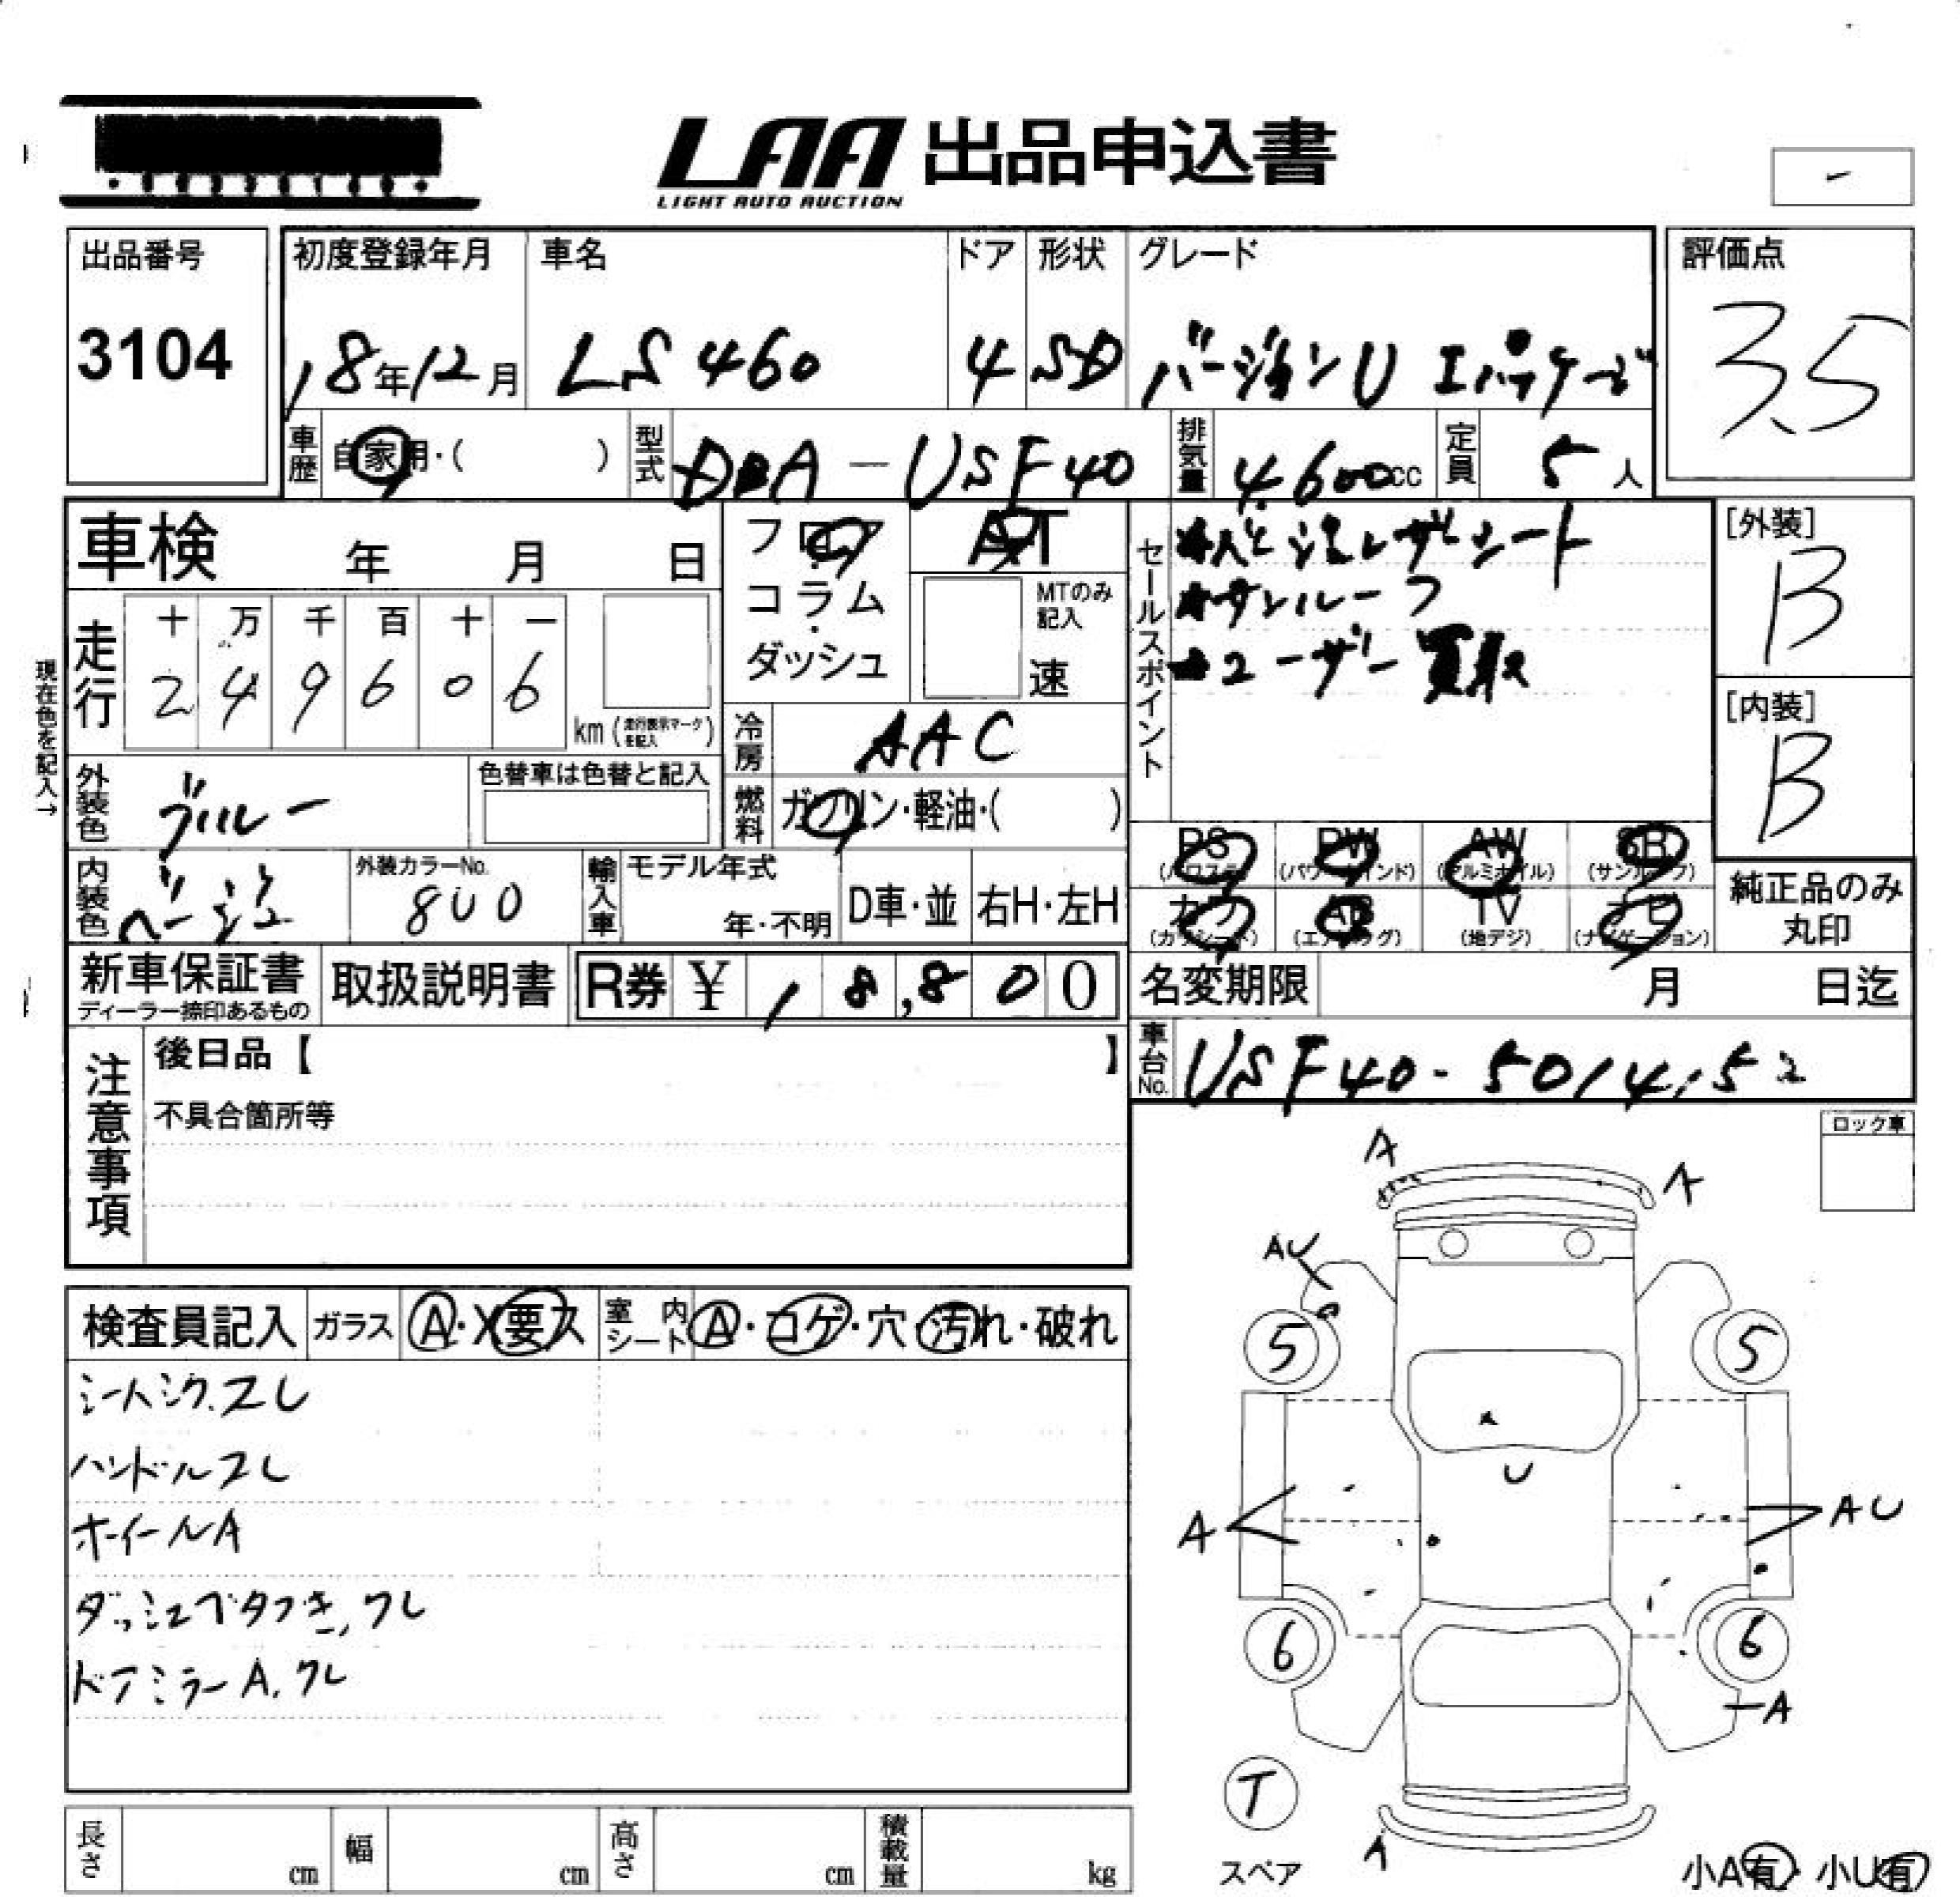 LAA 出品申込書
LIGHT AUTO AUCTION
-
出品番号 初度登録年月 車名 ドア 形状 グレード 評価点
3104 18年12月 LS460 4 SD バージョンU Iパッケージ 3.5
車歴 自家用・( ) 型式 DBA-USF40 排気量 4,600cc 定員 5人
車検 年 月 日
フロア
コラム
ダッシュ
AT
MTのみ記入
速
セールスポイント
レザーシート
サンルーフ
ユーザー買取
[外装]
B
[内装]
B
現在色を記入→
走行 十 万 千 百 十 一
2 4 9 6 0 6 km (走行表示マークを記入)
冷房 AAC
外装色 ブルー 色替車は色替と記入
燃料 ガソリン・軽油・( )
内装色 ベージュ 外装カラーNo. 8U0 輸入車 モデル年式 年・不明 D車・並 右H・左H
PS (パワステ) PW (パワーウインド) AW (アルミホイル) SR (サンルーフ)
カワ (カワシート) AB (エアバッグ) TV (地デジ) ナビ (ナビゲーション)
純正品のみ丸印
新車保証書 ディーラー捺印あるもの 取扱説明書 R券 ¥ 18,800
名変期限 月 日迄
車台No. USF40-5014152
注意事項
後日品【 】
不具合箇所等
ロック車
検査員記入 ガラス A・X要ス 室内シート A・コゲ・穴・汚れ・破れ
シートシワ.スレ
ハンドルスレ
ホイールA
ダッシュベタつき,ワレ
ドアミラーA.ワレ
A
A
AU
5 5
U
A AU
6 6
A
T
スペア
A
小A有・小U有
長さ cm 幅 cm 高さ cm 積載量 kg